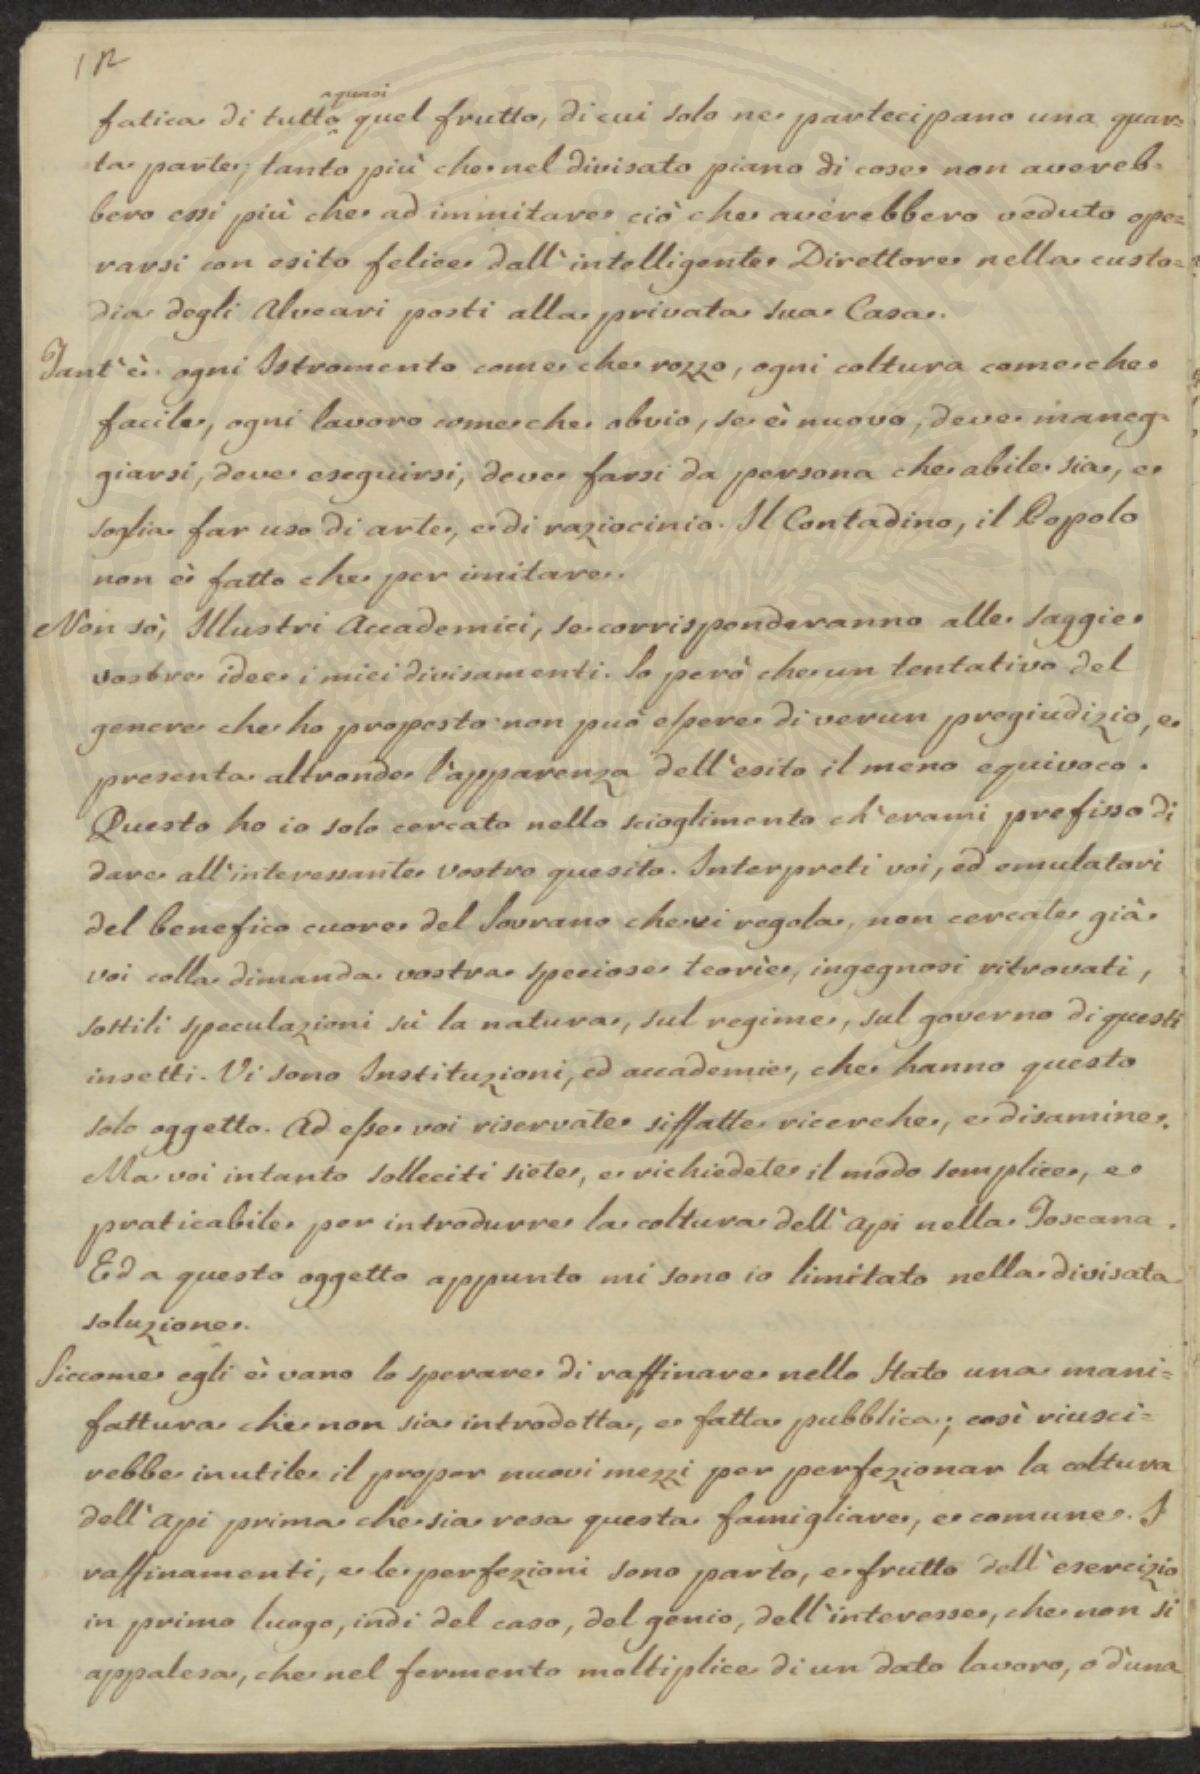 12
quasi
fatica di tutto quel frutto, di cui solo ne partecipano una quar=
ta parte; tanto più che nel divisato piano di cose non avereb=
bero essi più che ad immitare ciò che averebbero veduto ope=
rarsi con esito felice dall'intelligente Direttore nella custo=
dia degli Alveari posti alla privata sua Casa.
Tant'è. ogni Istromento come che rozzo, ogni coltura come che
facile, ogni lavoro come che obvio, se è nuovo, deve maneg=
giarsi, deve eseguirsi, deve farsi da persona che abile sia, e
soglia far uso di arte, e di raziocinio. Il Contadino, il Popolo
non è fatto che per imitare.
Non sò, Illustri Accademici, se corrisponderanno alle saggie
vostre idee i miei divisamenti. So però che un tentativo del
genere che ho proposto non può essere di verun pregiudizio, e
presenta altronde l'apparenza dell'esito il meno equivoco.
Questo ho io solo cercato nello scioglimento ch'erami prefisso di
dare all'interessante vostro quesito. Interpreti voi, ed emulatori
del benefico cuore del Sovrano che vi regola, non cercate già
voi colla dimanda vostra speciose teorìe, ingegnosi ritrovati,
sottili speculazioni sù la natura, sul regime, sul governo di questi
insetti. Vi sono Instituzioni, ed accademie, che hanno questo
solo oggetto. Ad esse voi riservate siffatte ricerche, e disamine.
Ma voi intanto solleciti siete, e richiedete il modo semplice, e
praticabile per introdurre la coltura dell'Api nella Toscana.
Ed a questo oggetto appunto mi sono io limitato nella divisata
soluzione.
Siccome egli è vano lo sperare di raffinare nello Stato una mani=
fattura che non sia introdotta, e fatta pubblica; così riusci=
rebbe inutile il propor nuovi mezzi per perfezionar la coltura
dell'Api prima che sia resa questa famigliare, e comune. I
raffinamenti, e le perfezioni sono parto, e frutto dell'esercizio
in primo luogo, indi del caso, del genio, dell'interesse, che non si
appalesa, che nel fermento moltiplice di un dato lavoro, o d'una